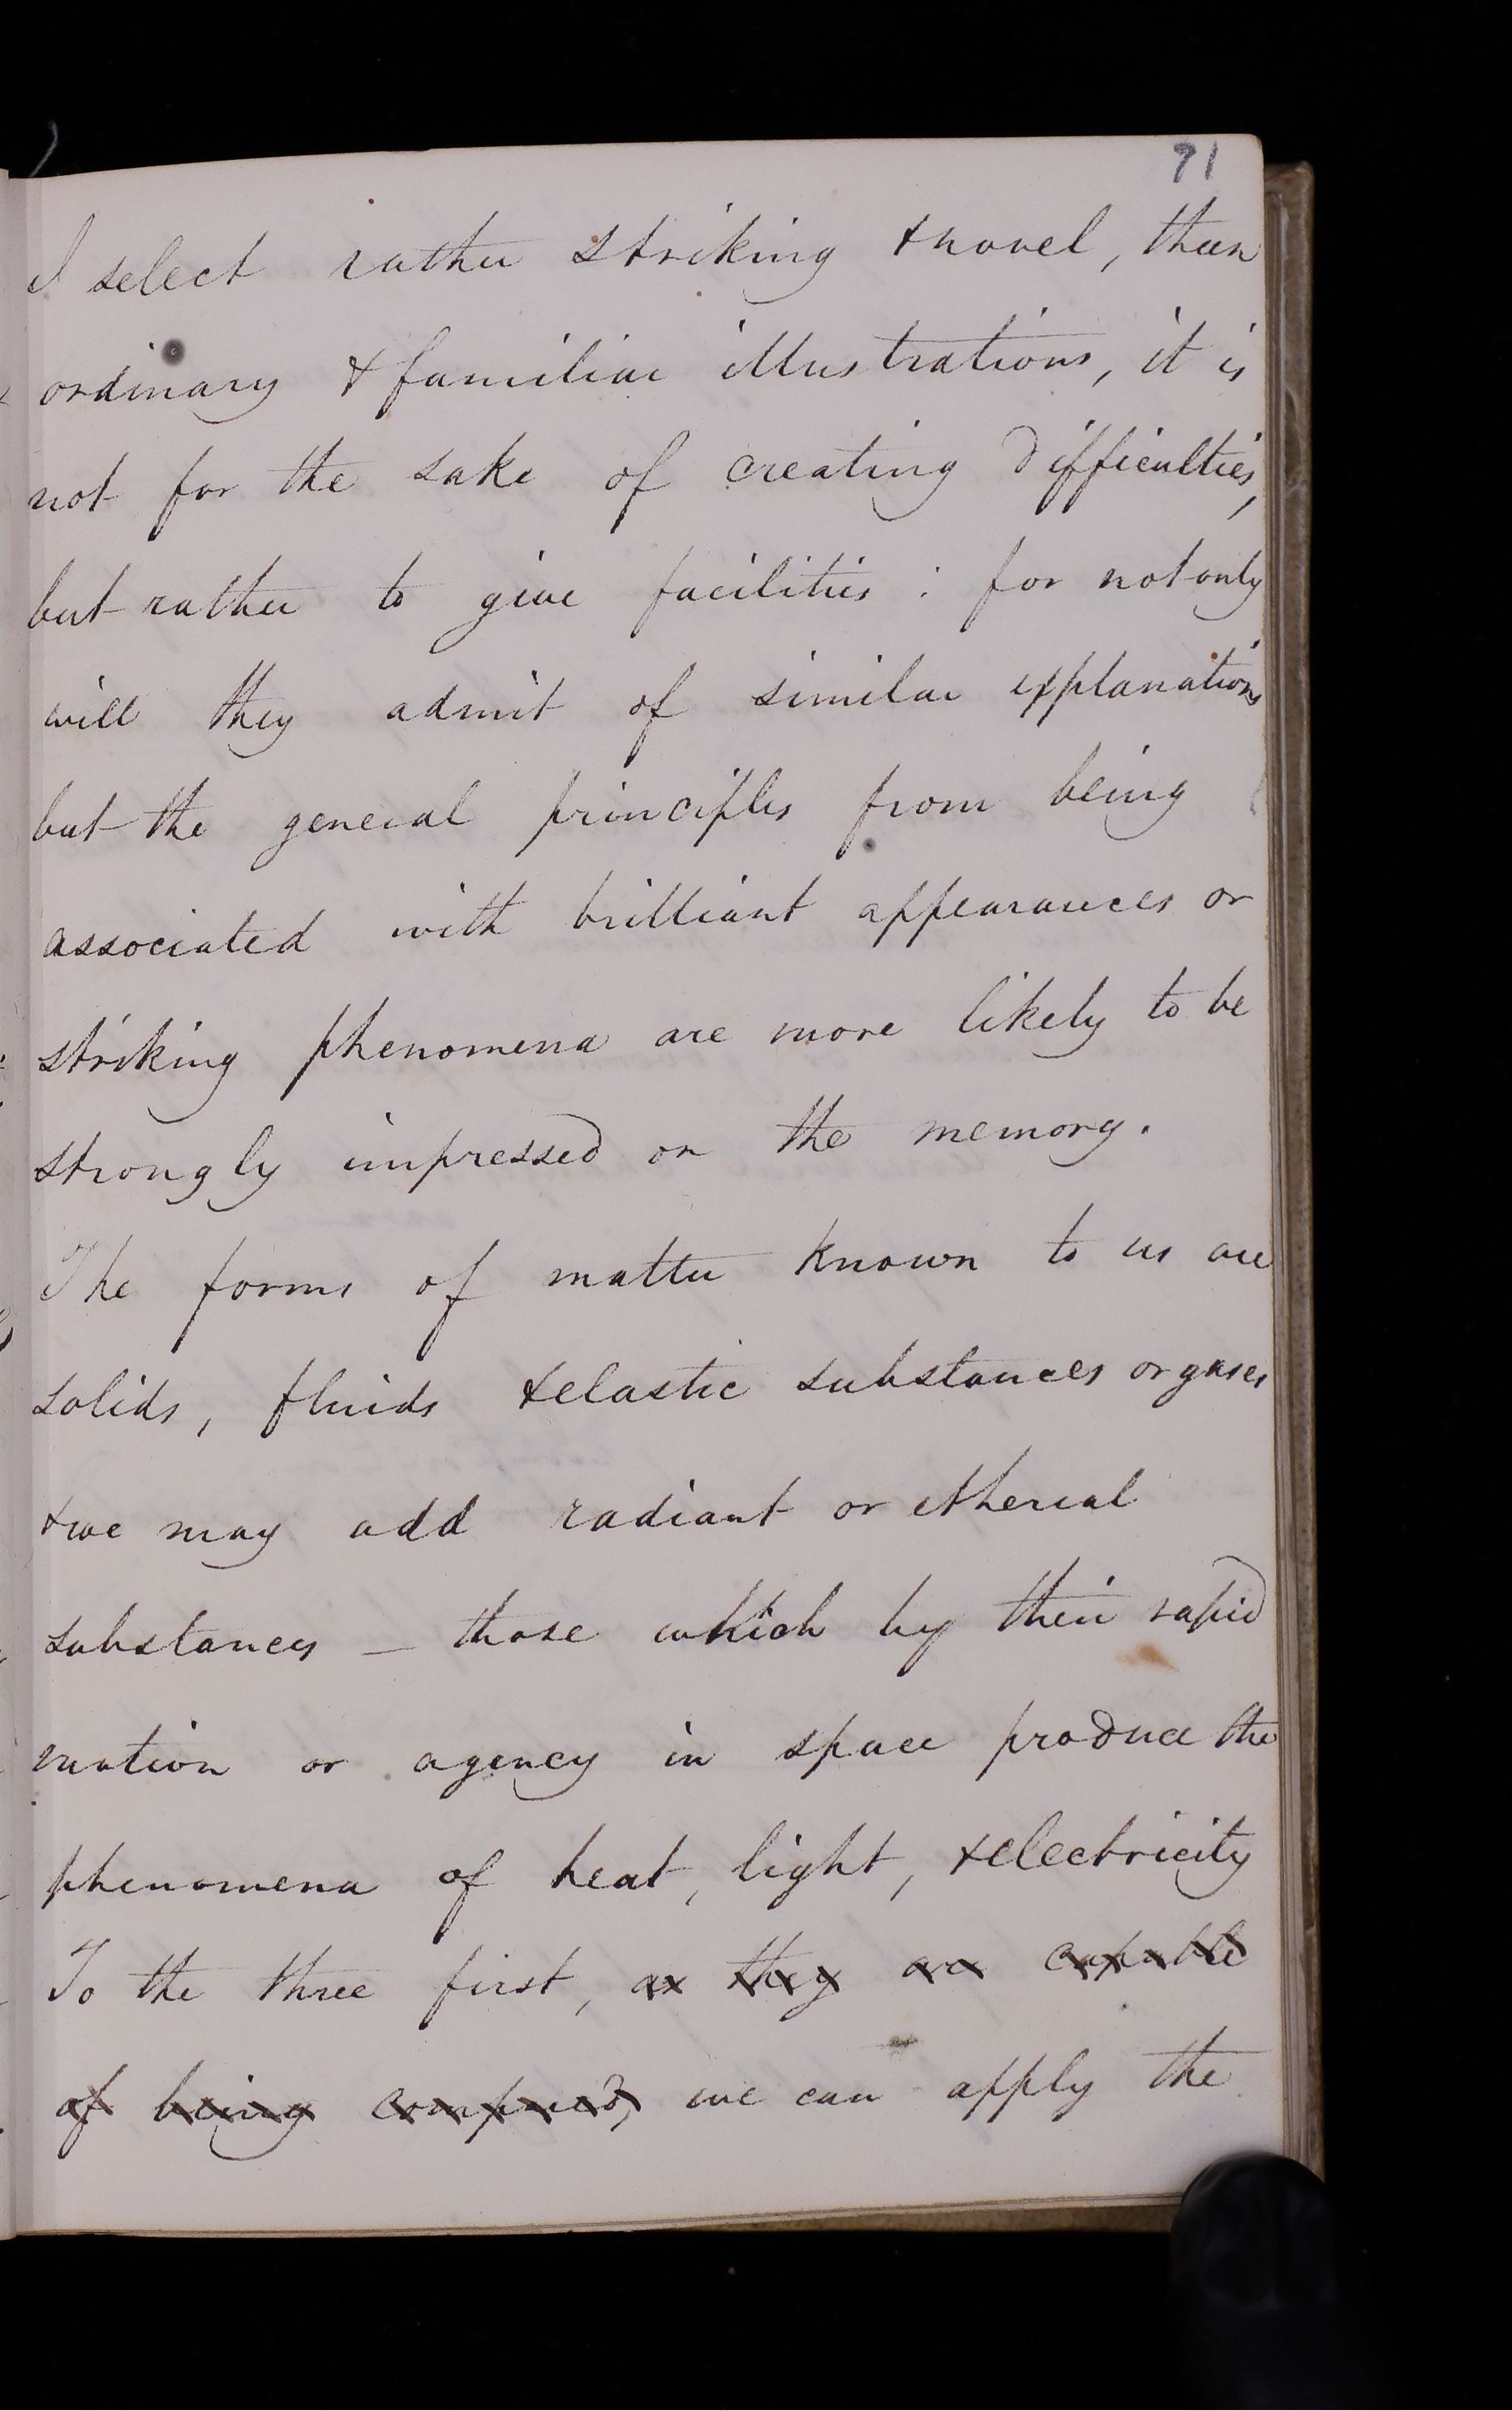 71
I select rather striking & novel, than
ordinary & familiar illustrations, it is
not for the sake of creating difficulties,
but rather to give facilities : for not only
will they admit of similar explanations
but the general principles from being
associated with brilliant appearances or
striking phenomena are more likely to be
strongly impressed on the memory.
The forms of matter known to us are
solids, fluids & elastic substances or gases
& we may add radiant or etherial
substances – those which by their rapid
motion or agency in space produce the
phenomena of heat, light, & electricity
To the three first, as they are capable
of being confined, we can apply the